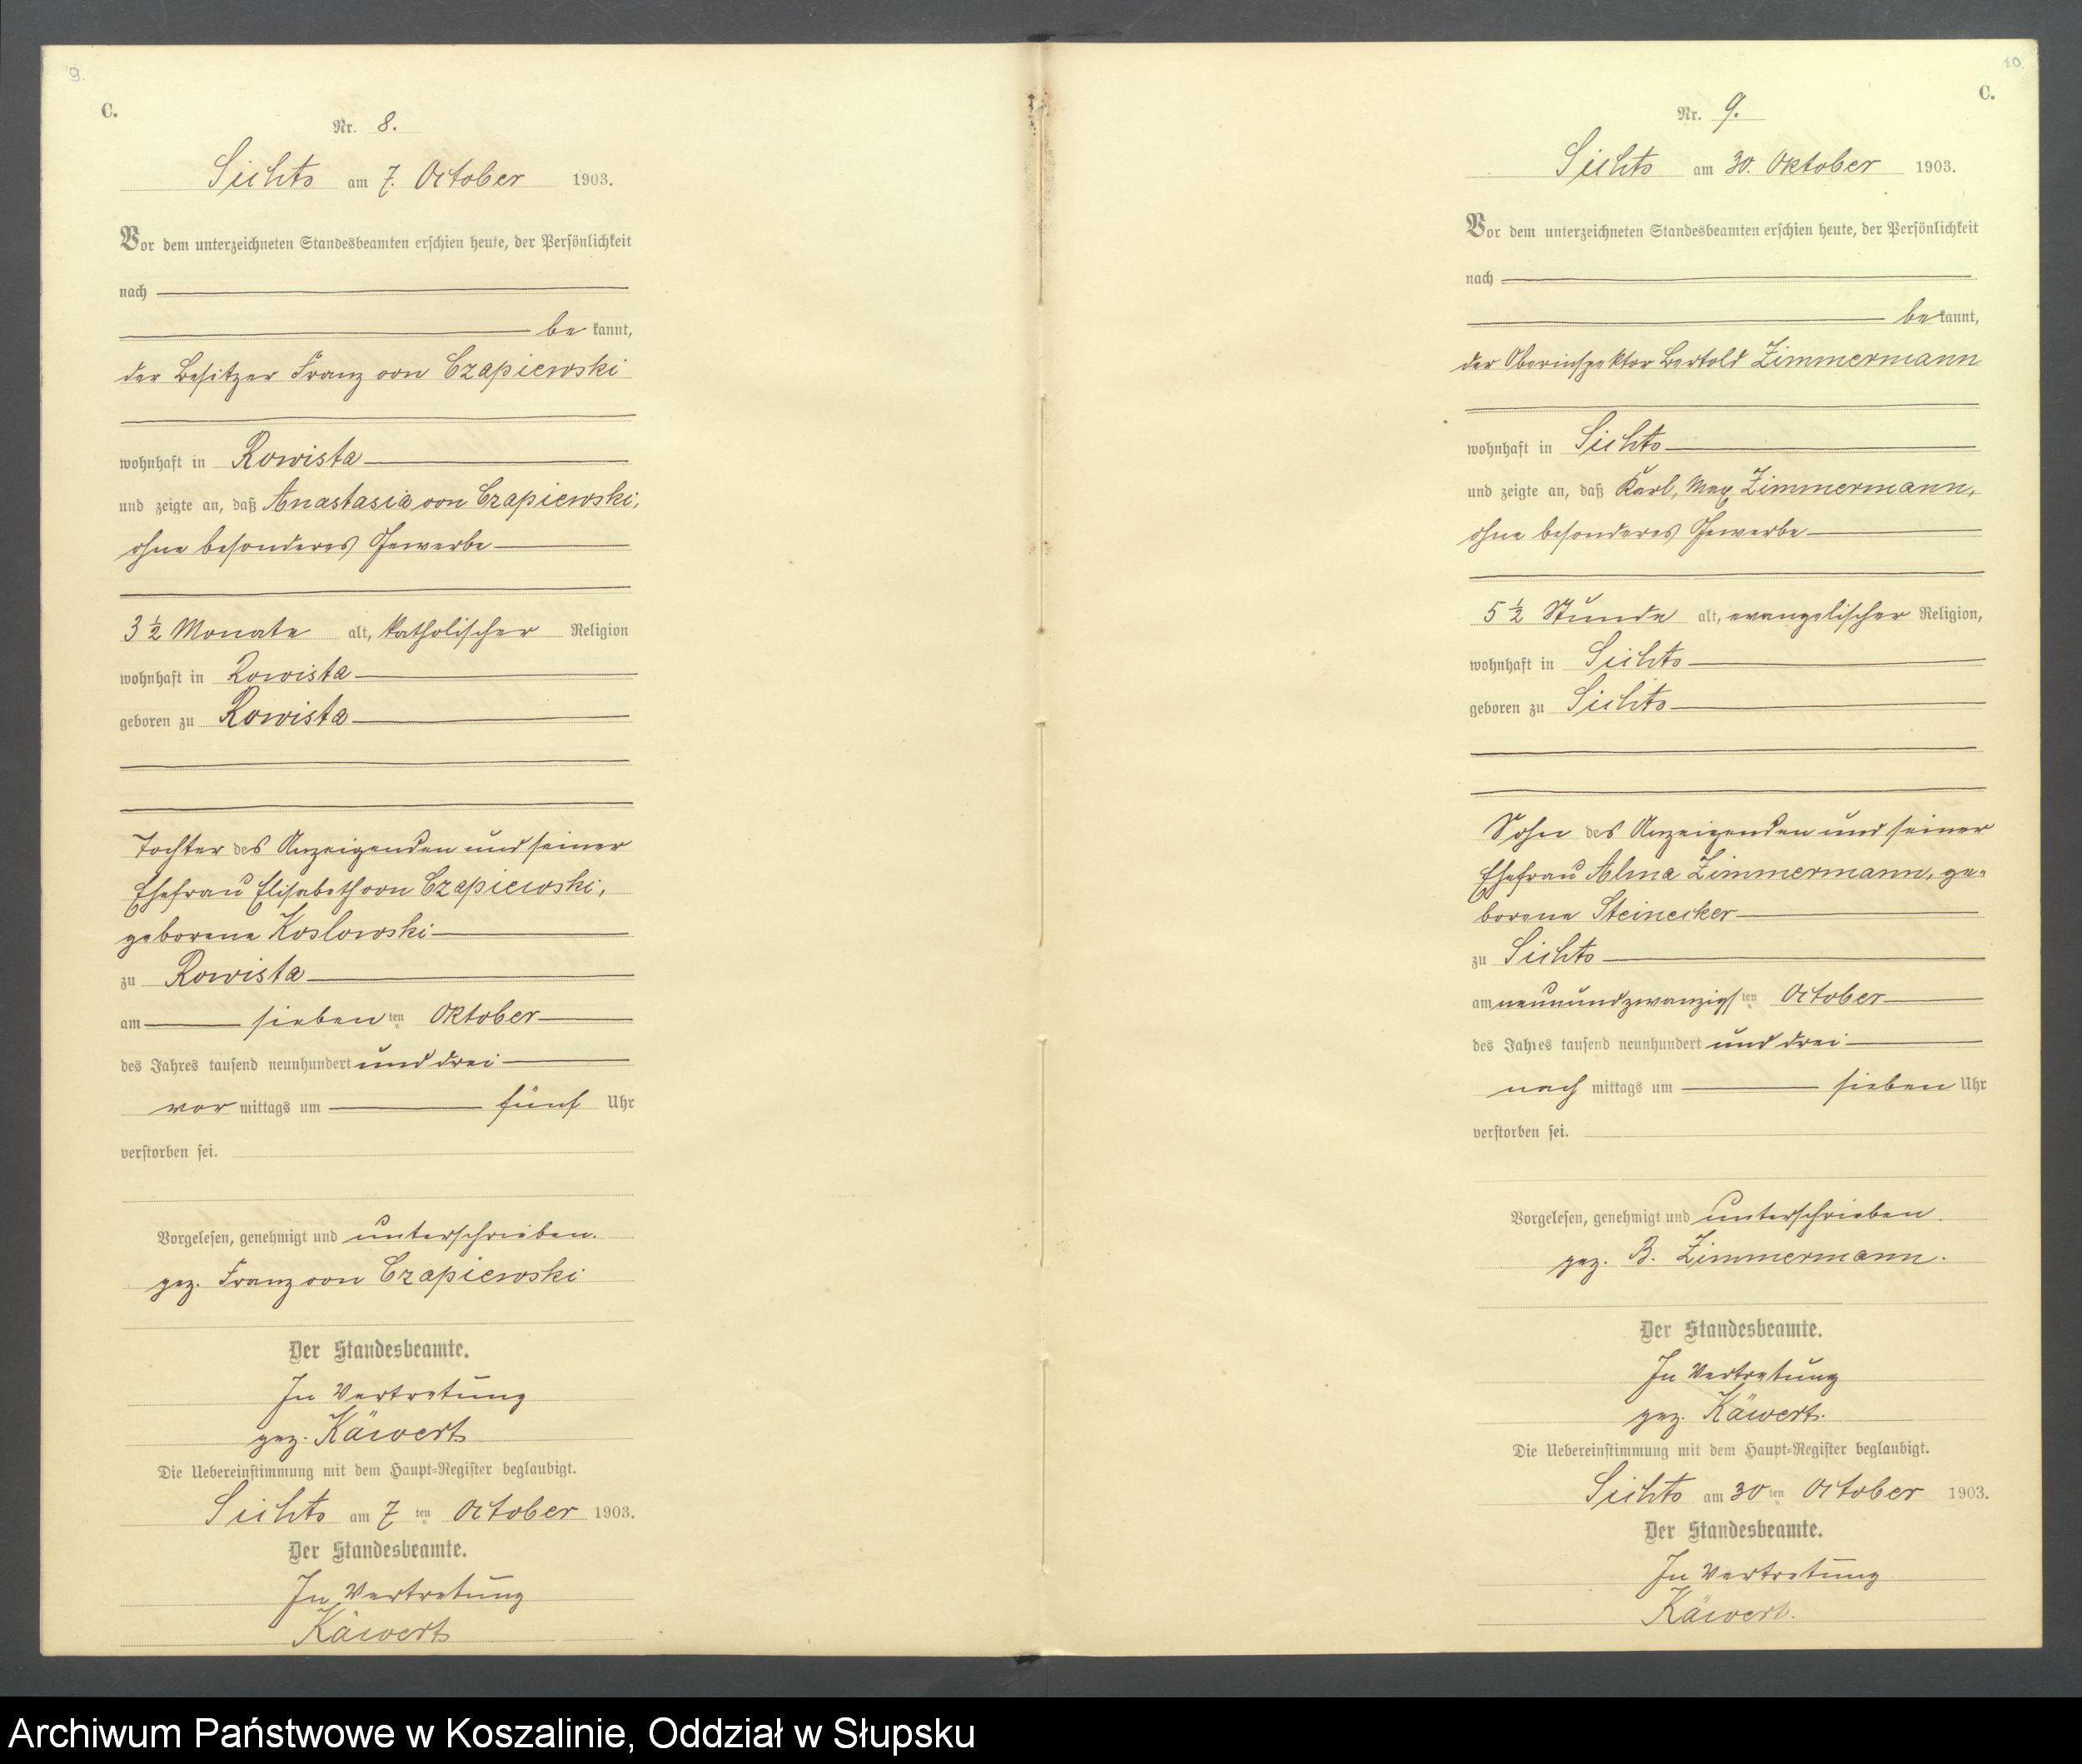 9.
C.
Nr. 8.
Sichts am 7. October 1903.
Vor dem unterzeichneten Standesbeamten erschien heute, der Persönlichkeit
nach
be kannt,
der Besitzer Franz von Czapiewski
wohnhaft in Rowista
und zeigte an, daß Anastasia von Czapiewski,
ohne besonderes Gewerbe
3 1/2 Monate alt, katholischer Religion
wohnhaft in Rowista
geboren zu Rowista
Tochter des Anzeigenden und seiner
Ehefrau Elisabeth von Czapiewski,
geborene Koslowski
zu Rowista
am sieben ten Oktober
des Jahres tausend neunhundert und drei
vor mittags um fünf Uhr
verstorben sei.
Vorgelesen, genehmigt und unterschrieben.
gez. Franz von Czapiewski
Der Standesbeamte.
In Vertretung
gez. Käwert
Die Uebereinstimmung mit dem Haupt-Register beglaubigt.
Sichts am 7 ten October 1903.
Der Standesbeamte.
In Vertretung
Käwert
10.
C.
Nr. 9.
Sichts am 30. Oktober 1903.
Vor dem unterzeichneten Standesbeamten erschien heute, der Persönlichkeit
nach
be kannt,
der Oberinspektor Bertold Zimmermann
wohnhaft in Sichts
und zeigte an, daß Karl, Max Zimmermann,
ohne besonderes Gewerbe
5 1/2 Stunde alt, evangelischer Religion,
wohnhaft in Sichts
geboren zu Sichts
Sohn des Anzeigenden und seiner
Ehefrau Alma Zimmermann, ge-
borene Steinecker
zu Sichts
am neunundzwanzigs ten October
des Jahres tausend neunhundert und drei
nach mittags um sieben Uhr
verstorben sei.
Vorgelesen, genehmigt und unterschrieben.
gez. B. Zimmermann.
Der Standesbeamte.
In Vertretung
gez. Käwert.
Die Uebereinstimmung mit dem Haupt-Register beglaubigt.
Sichts am 30 ten October 1903.
Der Standesbeamte.
In Vertretung
Käwert.
Archiwum Państwowe w Koszalinie, Oddział w Słupsku